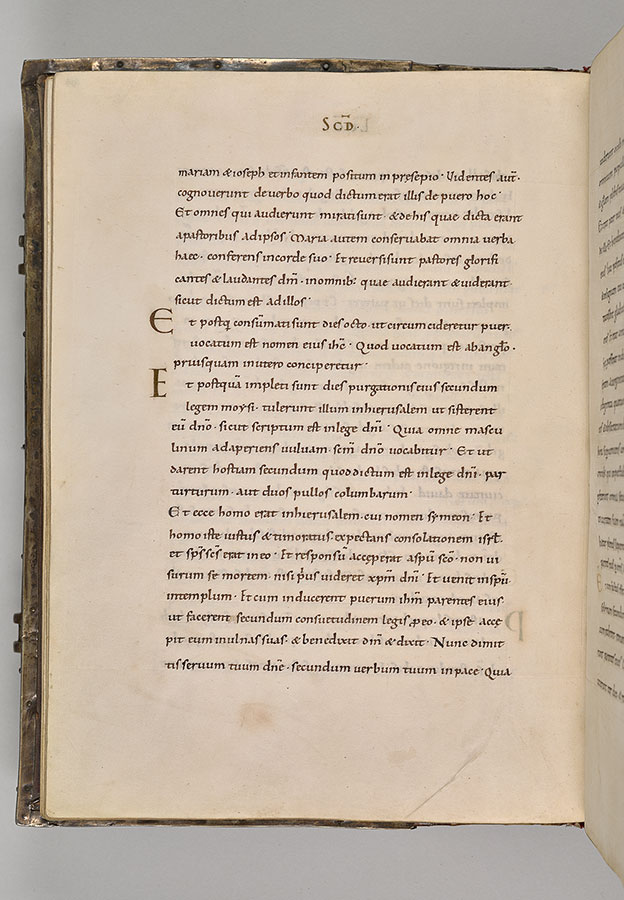 SCD̄·
mariam & ioseph et infantem positum in presepio · Videntes aut̄·
cognoverunt de verbo quod dictum erat illis de puero hoc·
Et omnes qui audierunt mirati sunt · & de his quae dicta erant
a pastoribus ad ipsos · Maria autem conservabat omnia verba
haec · conferens in corde suo · Et reversi sunt pastores glorifi
cantes & laudantes dm̄ · in omnib: quae audierant & viderant·
sicut dictum est ad illos·
Et postq̄ consūmati sunt dies octo · ut circumcideretur puer·
vocatum est nomen eius ihc̄ · Quod vocatum est ab anglō·
priusquam in utero conciperetur·
Et postquā impleti sunt dies purgationis eius secundum
legem moysi · tulerunt illum in hierusalem ut sisterent
eū dnō · sicut scriptum est in lege dnī · Quia omne mascu
linum adaperiens vulvam · scm̄ dnō vocabitur · Et ut
darent hostiam secundum quod dictum est in lege dnī · par
turturum · aut duos pullos columbarum·
Et ecce homo erat in hierusalem · cui nomen symeon · Et
homo iste iustus & timoratus · expectans consolationem isrl̄·
et sps̄ scs̄ erat in eo · Et responsū acceperat a spū scō · non vi
surum se mortem · nisi p̓us videret xpm̄ dnī · Et venit in spū·
in templum · Et cum inducerent puerum ihm̄ parentes eius·
ut facerent secundum consuetudinem legis p̱ eo · & ipse accę
pit eum in ulnas suas · & benedixit dm̄ & dixit · Nunc dimit
tis servum tuum dnē · secundum verbum tuum in pace · Quia